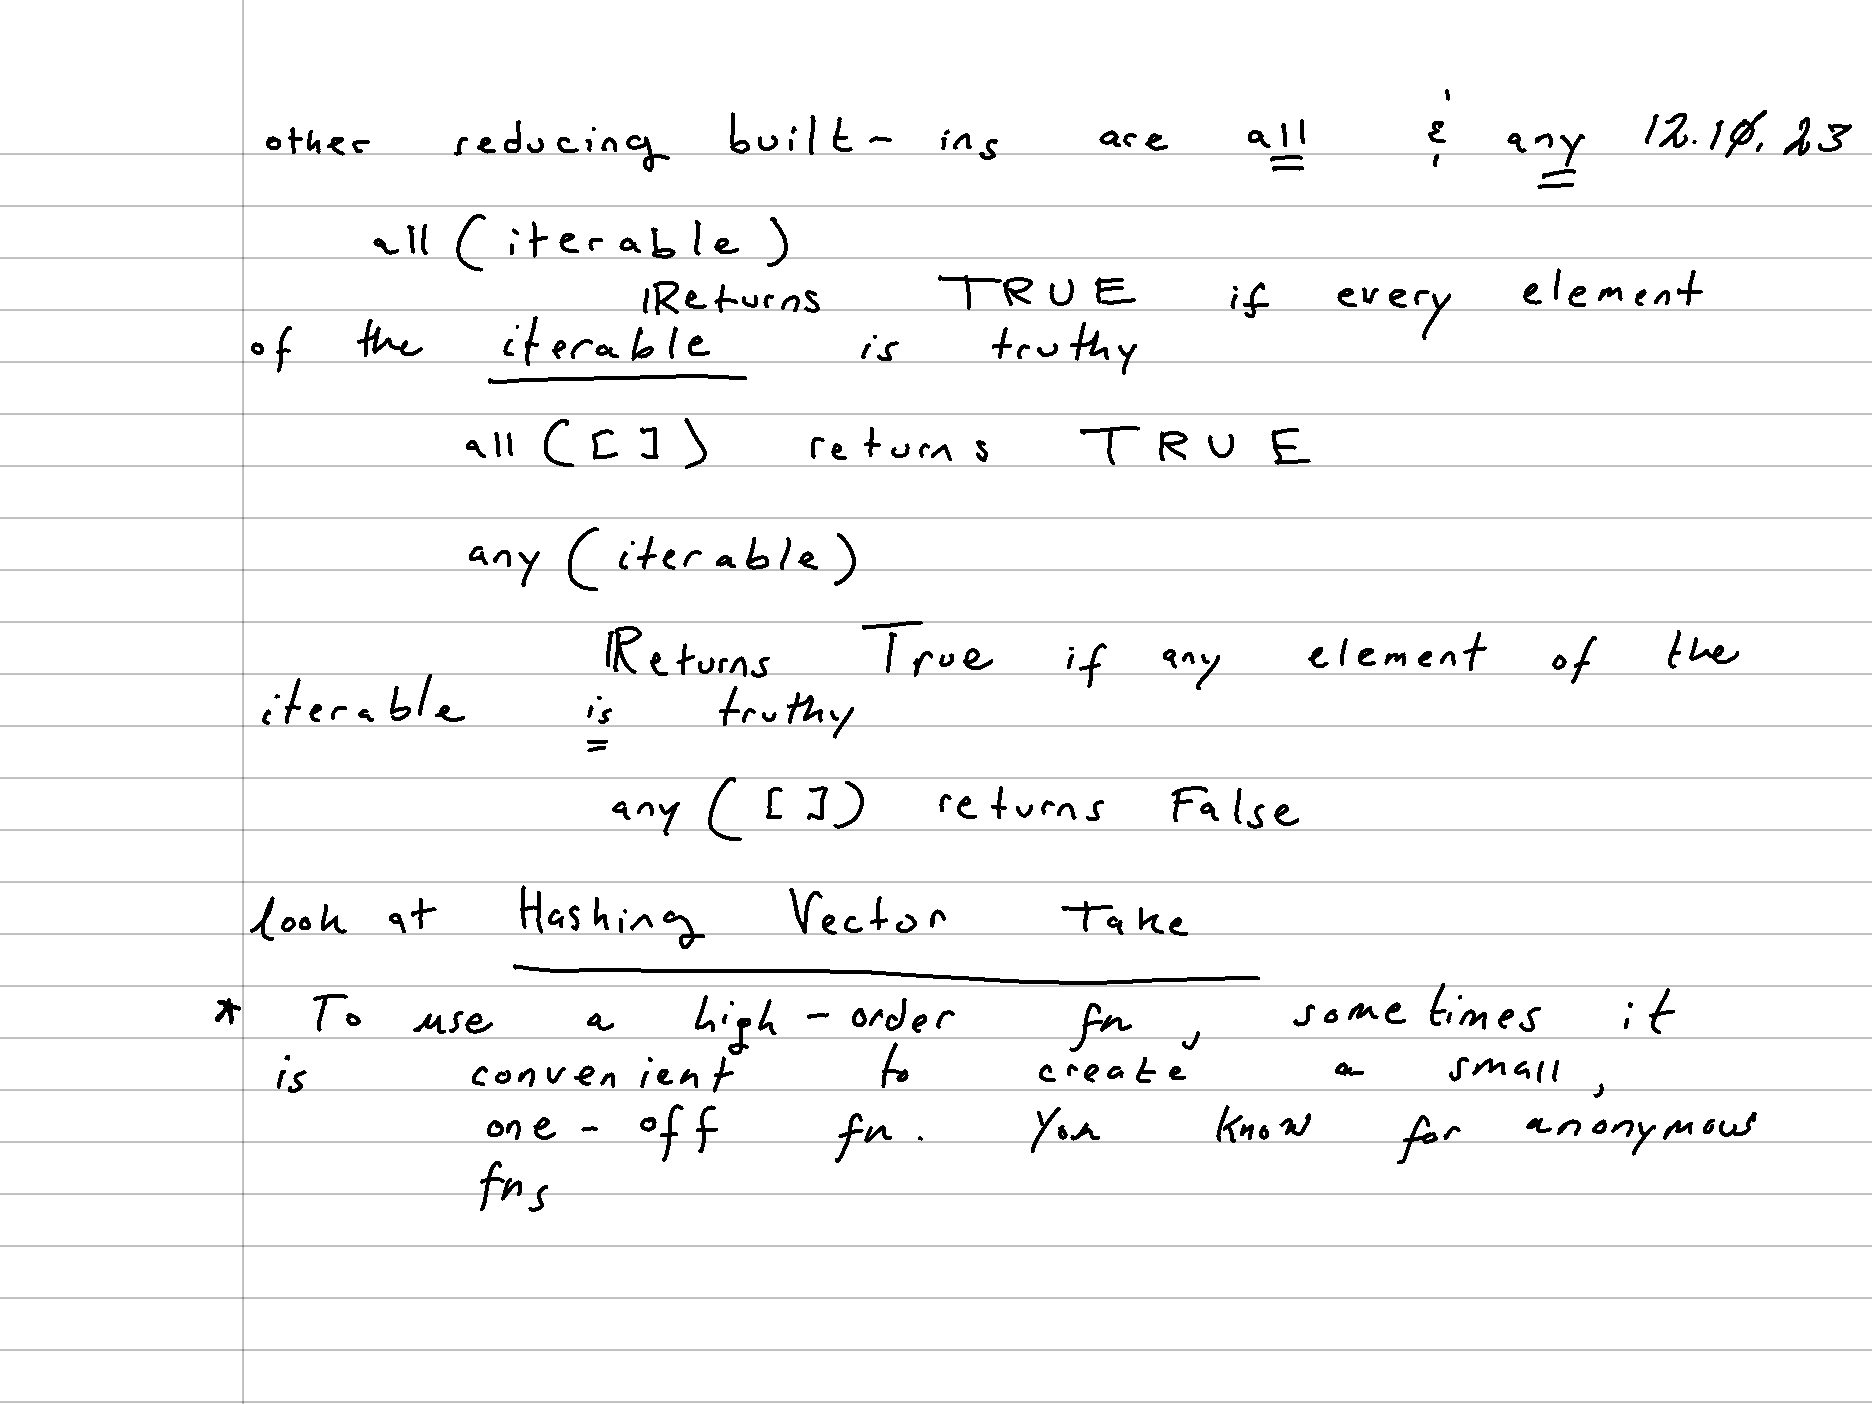 other reducing built-ins are all & any 12.10.23
all (iterable)
Returns TRUE if every element
of the iterable is truthy
all ([]) returns TRUE
any (iterable)
Returns True if any element of the
iterable is truthy
any ([]) returns False
look at Hashing Vector Take
* To use a high-order fn, sometimes it
is convenient to create a small,
one-off fn. You know for anonymous
fns